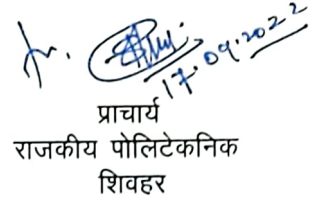 17.09.2022
प्राचार्य
राजकीय पोलिटेकनिक
शिवहर